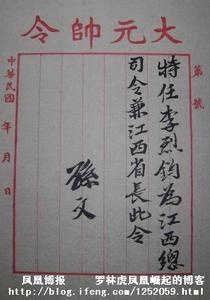 大元帥令
第 號
特任李烈鈞為江西總
司令兼江西省長此令
孫文
中華民國 年 月 日
凤凰博报 罗林虎凤凰崛起的博客
http://blog.ifeng.com/1252059.html